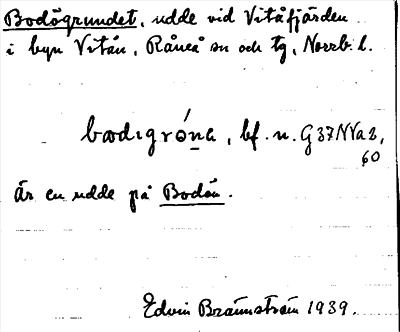 Bodögrundet, udde vid Vitåfjärden
i byn Vitån, Råneå sn och tg, Norrb. l.
bodıgrón̠a, bf. n. G 37 NVa 2,
60
Är en udde på Bodön.
Edvin Brännström 1939.